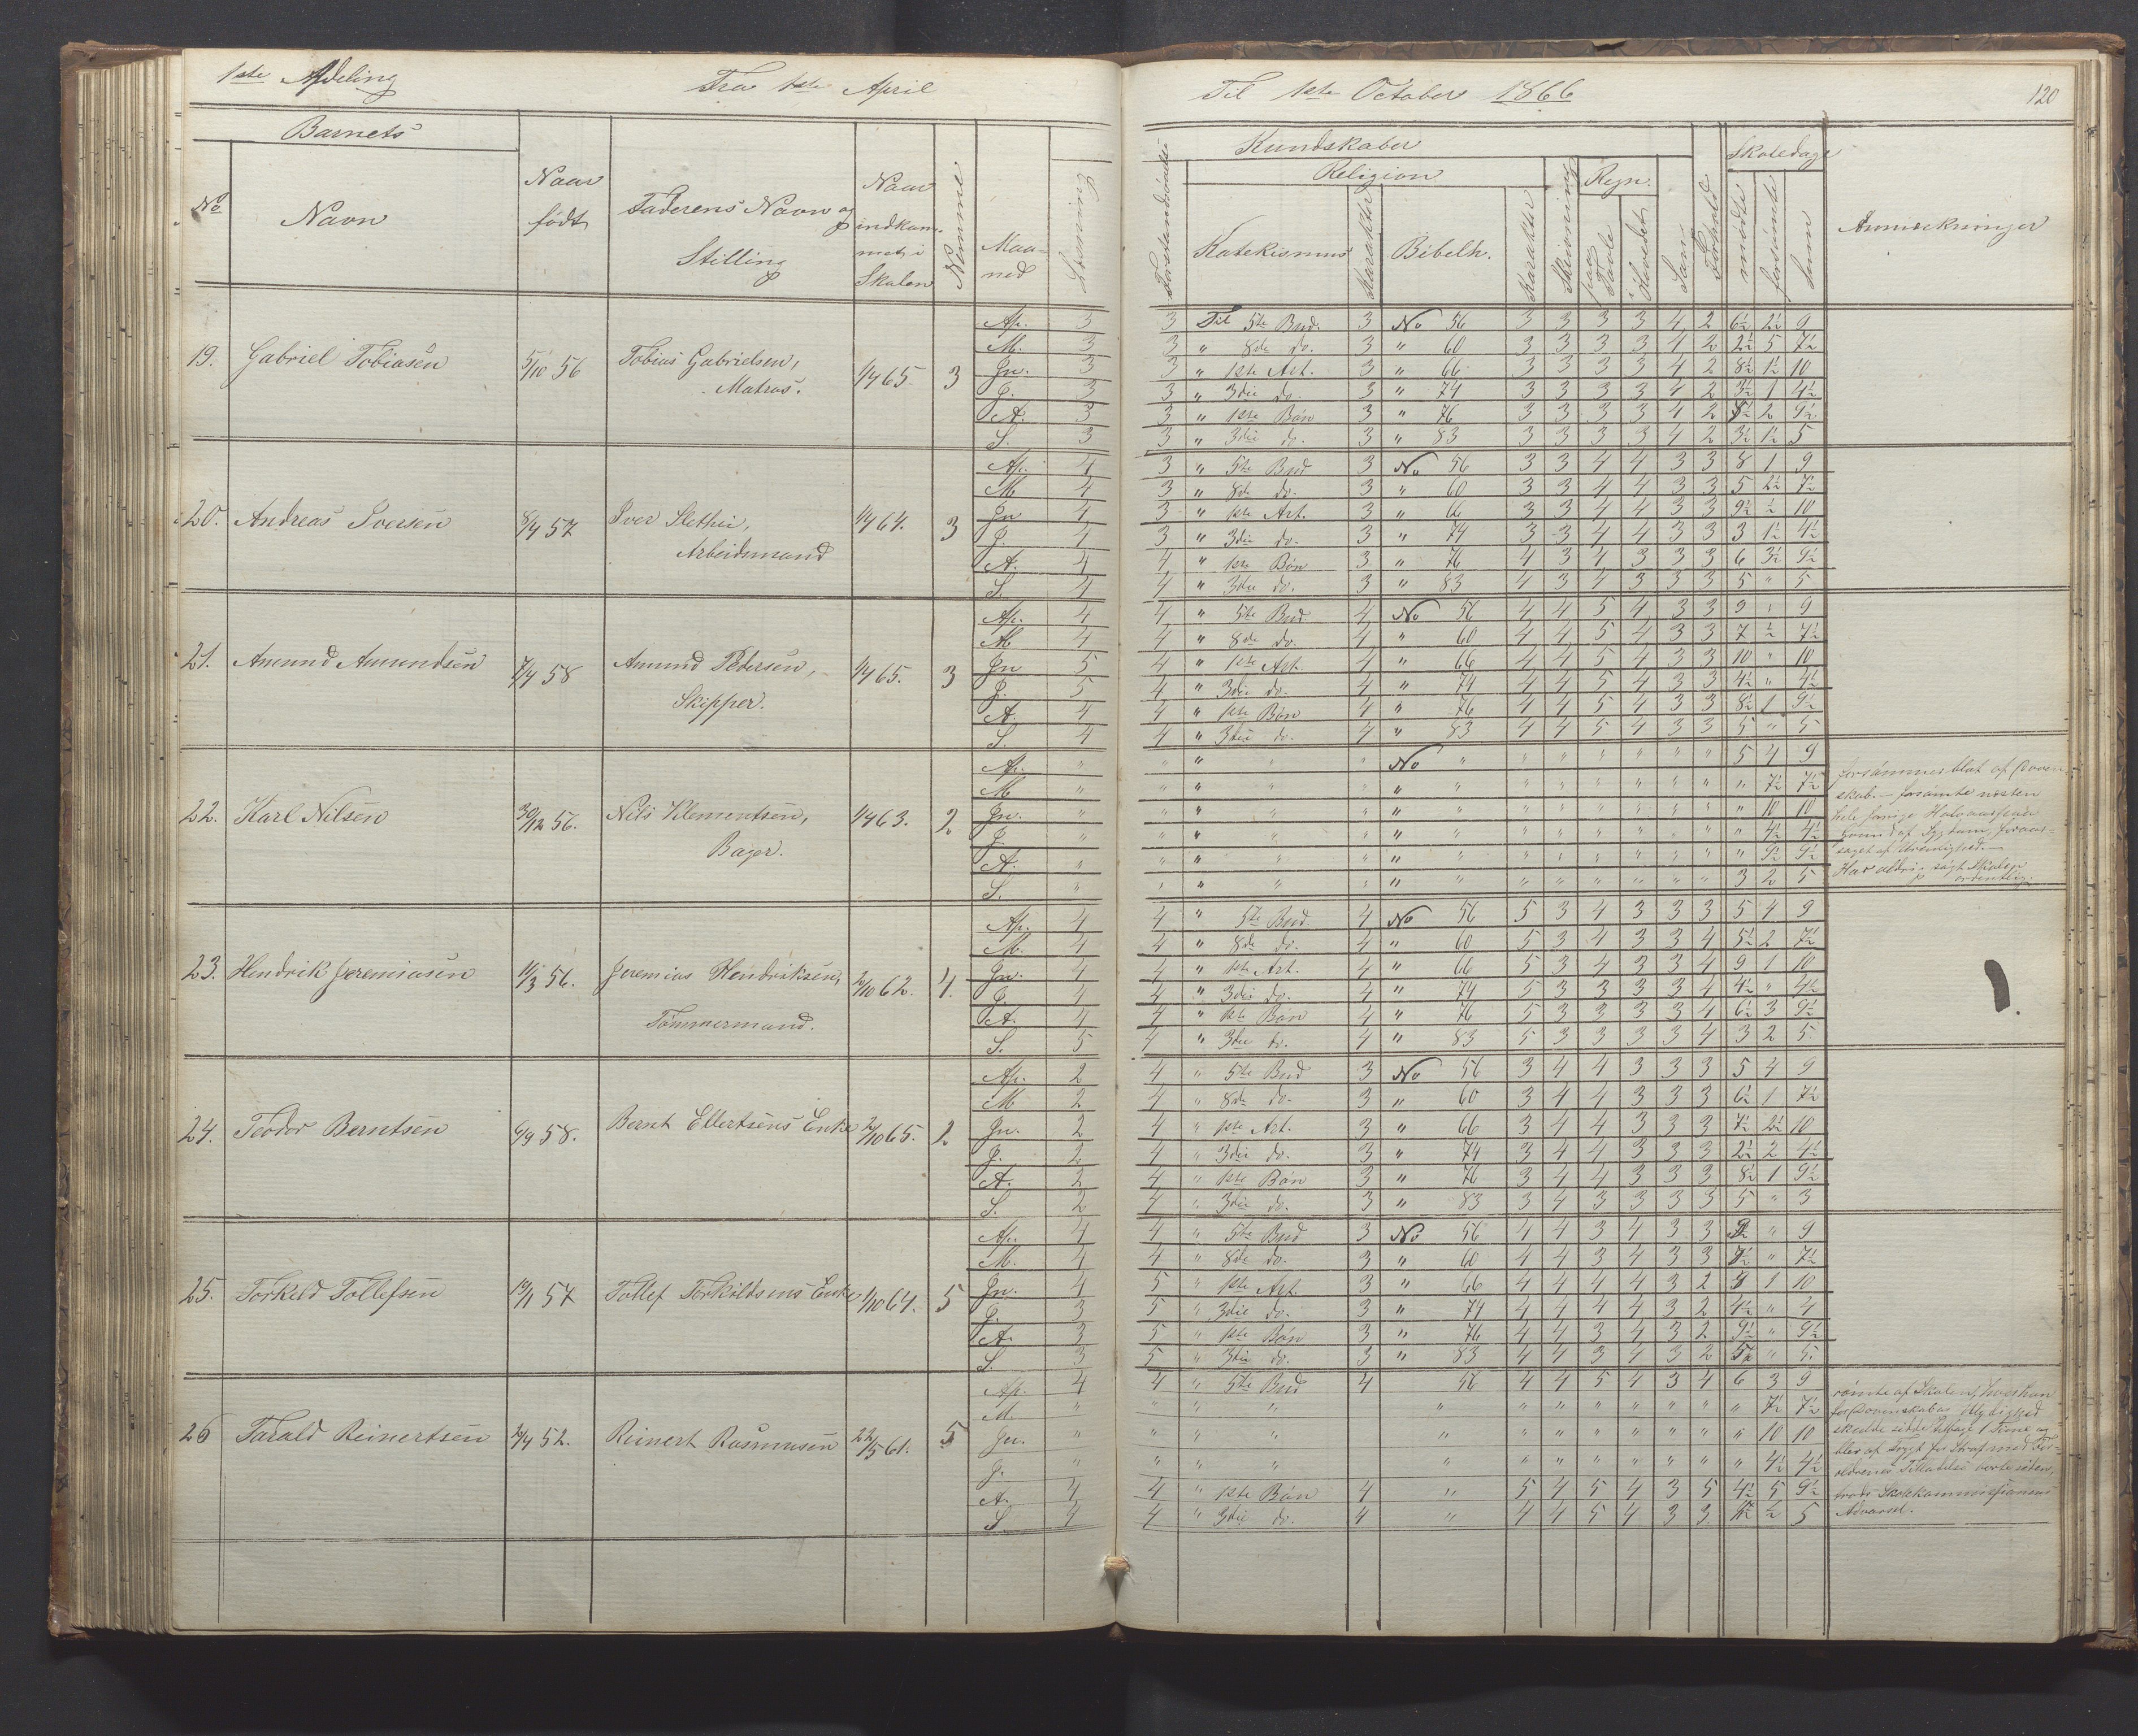 1ste Afdeling Fra 1ste April Til 1ste October 1866 120
Barnets Kundskaber Skoledage
No Navn Naar født Faderens Navn og Stilling Naar indkommet i Skolen Nemme Maaned Stavning Religion Katekismus Karakter Bibelh. Karakter Skrivning Regn. paa Tavle i Hovedet Sang Forhold mødte forsømte Sum Anmærkninger
19. Gabriel Tobiasen 5/10 56 Tobias Gabrielsen, Matros. 1/4 65. 3
Ap. 3 3 Til 5te Bud. 3 No 56 3 3 3 3 4 2 6½ 2½ 9
M. 3 3 " 8de do. 3 " 60 3 3 3 3 4 2 2½ 5 7½
Jn. 3 3 " 1ste Art. 3 " 66 3 3 3 3 4 2 8½ 1½ 10
J. 3 3 " 3die do. 3 " 74 3 3 3 3 4 2 3½ 1 4½
A. 3 3 " 1ste Bøn 3 " 76 3 3 3 3 4 2 2 9½
S. 3 3 " 3die do. 3 " 83 3 3 3 3 4 2 3½ 1½ 5
20. Andreas Iversen 8/4 57 Iver Slethei, Arbeidsmand 1/4 64. 3
Ap. 4 3 " 5te Bud 3 No 56 3 3 4 4 3 3 8 1 9
M 4 3 " 8de do. 3 " 60 3 3 4 4 3 3 5 2½ 7½
Jn 4 3 " 1ste Art. 3 " 66 3 3 4 4 3 3 9½ ½ 10
J. 4 3 " 3die do. 3 " 74 3 3 4 4 3 3 3 1½ 4½
A. 4 4 " 1ste Bøn 3 " 76 4 3 4 3 3 3 6 3½ 9½
S. 4 4 " 3die do. 3 " 83 4 3 4 3 3 3 5 " 5
21. Amund Amundsen 7/4 58 Amund Pedersen, Skipper. 1/4 65. 3
Ap. 4 4 " 5te Bud 4 No 56 4 4 5 4 3 3 9 " 9
M 4 4 " 8de do. 4 " 60 4 4 5 4 3 3 7 ½ 7½
Jn 5 4 " 1ste Art. 4 " 66 4 4 5 4 3 3 10 " 10
J. 5 4 " 3die do. 4 " 74 4 4 5 4 3 3 4½ " 4½
A. 4 4 " 1ste Bøn 4 " 76 4 4 5 4 3 3 8½ 1 9½
S. 4 4 " 3die do. 4 " 83 4 4 5 4 3 3 5 " 5
22. Karl Nilsen 30/12 56. Nils Klementsen, Bager. 1/4 63. 2
Ap. " " " " " No " " " " " " " 5 4 9
M " " " " " " " " " " " " " " 7½ 7½
Jn. " " " " " " " " " " " " " " 10 10
J. " " " " " " " " " " " " " " 4½ 4½
A. " " " " " " " " " " " " " " 9½ 9½
S. " " " " " " " " " " " " " 3 2 5
forsømmer blot af Doven
skab. — forsømte næsten
hele forrige Halvaar
af Sygdom, foraar-
saget af Urenlighed. —
Har aldrig søgt Skolen
ordentlig.
23. Hendrik Jeremiasen 11/3 56. Jeremias Hendriksen, Tømmermand. 2/10 62. 4.
Ap. 4 4 " 5te Bud. 4 No 56 5 3 4 3 3 3 5 4 9
M. 4 4 " 8de do. 4 " 60 5 3 4 3 3 4 5½ 2 7½
Jn. 4 4 " 1ste Art. 4 " 66 5 3 4 3 3 4 9 1 10
J. 4 4 " 3die do. 4 " 74 5 3 3 3 3 4 4½ " 4½
A. 4 4 " 1ste Bøn 4 " 76 5 3 3 3 3 4 6½ 3 9½
S. 5 4 " 3die do. 4 " 83 5 3 3 3 3 4 3 2 5
24. Teodor Berntsen 6/9 58. Bernt Ellertsens Enke 2/10 65. 2
Ap. 2 4 " 5te Bud 3 No 56 3 4 4 3 3 3 5 4 9
M 2 4 " 8de do. 3 " 60 3 4 4 3 3 3 6½ 1 7½
Jn. 2 4 " 1ste Art. 3 " 66 3 4 4 3 3 3 7½ 2½ 10
J. 2 4 " 3die do. 3 " 74 3 4 4 3 3 3 2½ 2 4½
A. 2 4 " 1ste Bøn 3 " 76 3 4 4 3 3 3 8½ 1 9½
S. 2 4 " 3die do. 3 " 83 3 4 3 3 3 3 5 " 3
25. Torkeld Tollefsen 19/1 57 Tollef Torkildsens Enke 1/10 64. 5
Ap. 4 4 " 5te Bud 3 No 56 4 4 3 4 3 3 9 " 9
M. 4 4 " 8de do. 3 " 60 4 4 3 4 3 3 7½ " 7½
Jn. 4 5 " 1ste Art. 3 " 66 4 4 4 4 3 2 9 1 10
J. 3 5 " 3die do. 3 " 74 4 4 4 4 3 2 4½ " 4
A. 3 5 " 1ste Bøn 3 " 76 4 4 3 4 3 2 9½ " 9½
S. 3 5 " 3die do. 3 " 83 4 4 3 4 3 2 5 " 5.
26 Tarald Reinertsen 2/4 52. Reinert Rasmusen 22/5 61. 5
Ap. 4 4 " 5te Bud 4 56 4 4 5 4 3 4 6 3 9
M. " " " " " " " " " " " " 7½ 7½
Jn. " " " " " " " " " " " " 10 10
J. " " " " " " " " " " " " 4½ 4½
A. 4 4 " 1ste Bøn 4 " 5 4 5 4 3 5 4½ 5 9½
S. 4 4 " 3die do. 4 " 4 4 5 4 3 3 ½ 5
rømte af Skolen, hvor han
for Dovenskab og Ulydighed
skulde sidde tilbage 1 Time og
blev af Frygt for Straf med For-
ældrenes Tilladelse borte siden,
trods Skolekommissionens
Advarsel.